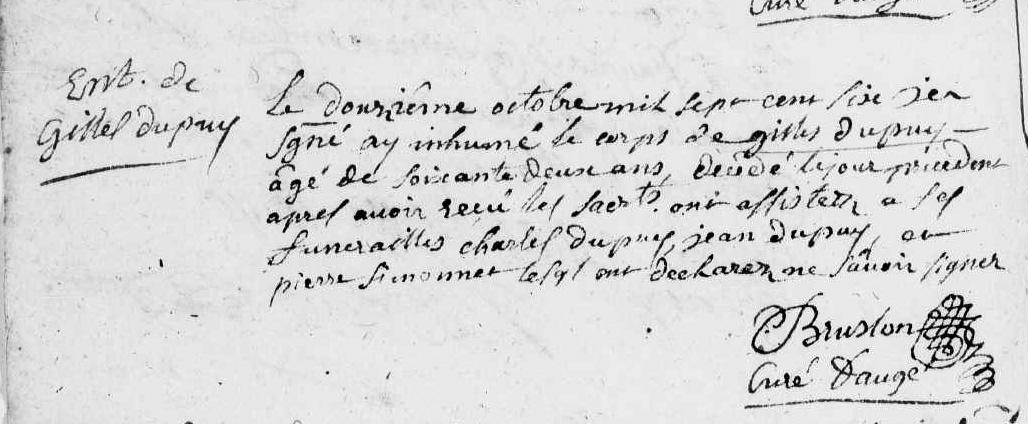 Curé Dauge
Ent. de
Gilles dupuy
Le douziême octobre mil sept cent six je
sgné ay inhumé le corps de gilles dupuy
âgé de soixante deux ans, décédé le jour précédent
apres avoir reçu les sacrts. ont assistez a ses
funerailles charles dupuy, jean dupuy, et
pierre simonnet lesqls ont déclarez ne sâvoir signer
Bruslon
Curé Dauge